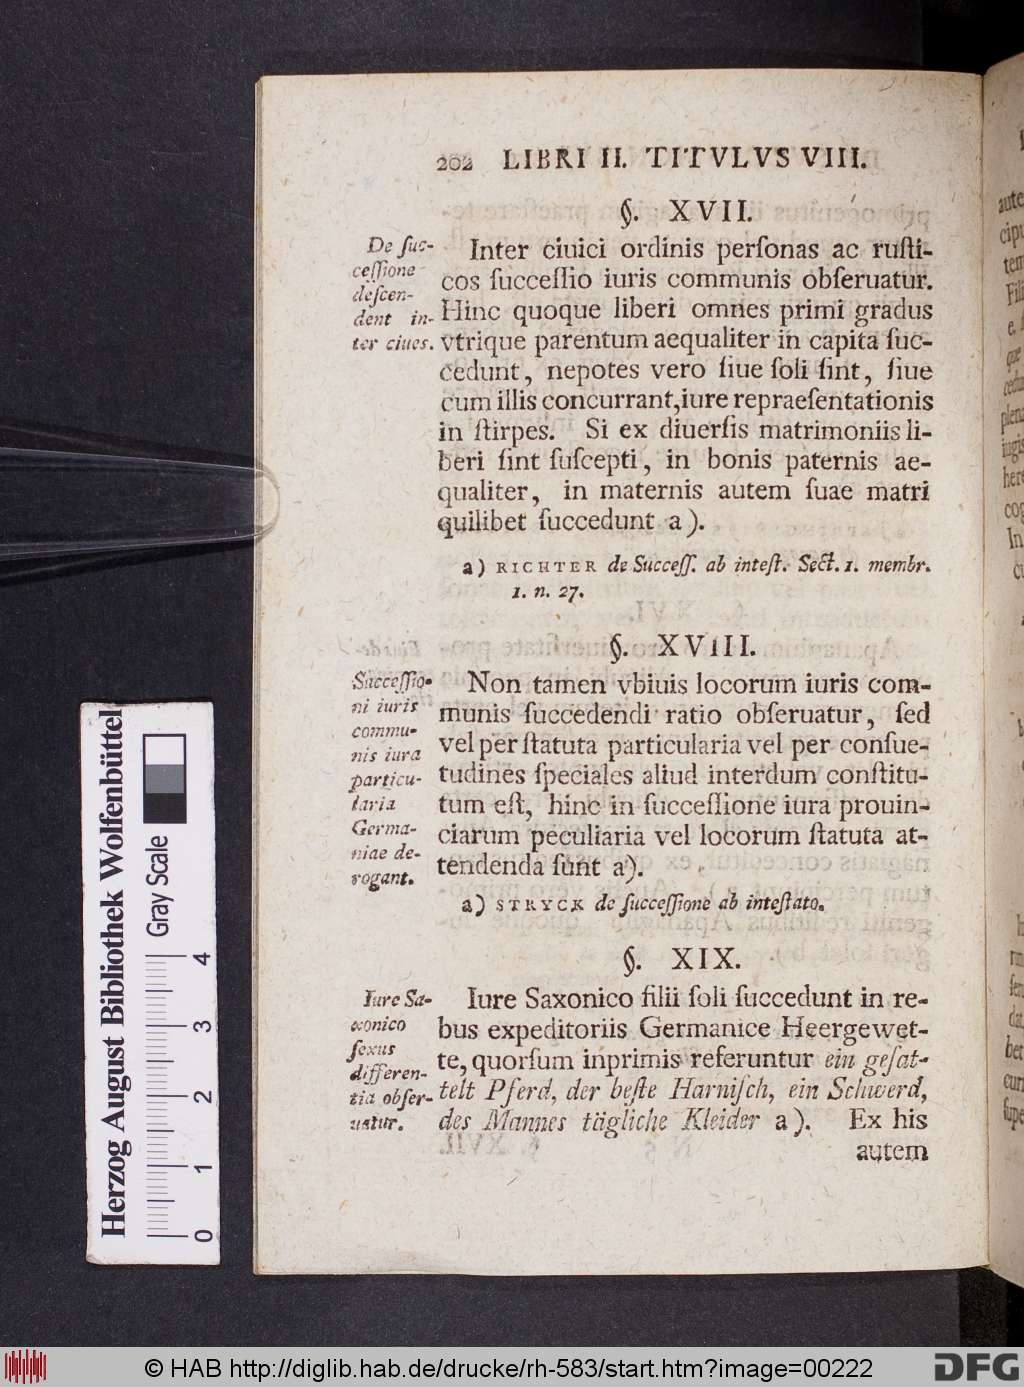 202 LIBRI II. TITVLVS VIII.
§. XVII.
De ſuc-
ceſſione
deſcen-
dent in-
ter ciues.
Inter ciuici ordinis perſonas ac ruſti-
cos ſucceſſio iuris communis obſeruatur.
Hinc quoque liberi omnes primi gradus
vtrique parentum aequaliter in capita ſuc-
cedunt, nepotes vero ſiue ſoli ſint, ſiue
cum illis concurrant, iure repraeſentationis
in ſtirpes. Si ex diuerſis matrimoniis li-
beri ſint ſuſcepti, in bonis paternis ae-
qualiter, in maternis autem ſuae matri
quilibet ſuccedunt a).
a) RICHTER de Succeſſ. ab inteſt. Sect. 1. membr.
1. n. 27.
§. XVIII.
Succeſſio-
ni iuris
commu-
nis iura
particu-
laria
Germa-
niae de-
rogant.
Non tamen vbiuis locorum iuris com-
munis ſuccedendi ratio obſeruatur, ſed
vel per ſtatuta particularia vel per conſue-
tudines ſpeciales aliud interdum conſtitu-
tum eſt, hinc in ſucceſſione iura prouin-
ciarum peculiaria vel locorum ſtatuta at-
tendenda ſunt a).
a) STRYCK de ſucceſſione ab inteſtato.
§. XIX.
Iure Sa-
xonico
ſexus
differen-
tia obſer-
uatur.
Iure Saxonico filii ſoli ſuccedunt in re-
bus expeditoriis Germanice Heergewet-
te, quorſum inprimis referuntur ein geſat-
telt Pferd, der beſte Harniſch, ein Schwerd,
des Mannes tägliche Kleider a). Ex his
autem
Herzog August Bibliothek Wolfenbüttel
Gray Scale
0 1 2 3 4
© HAB http://diglib.hab.de/drucke/rh-583/start.htm?image=00222
DFG